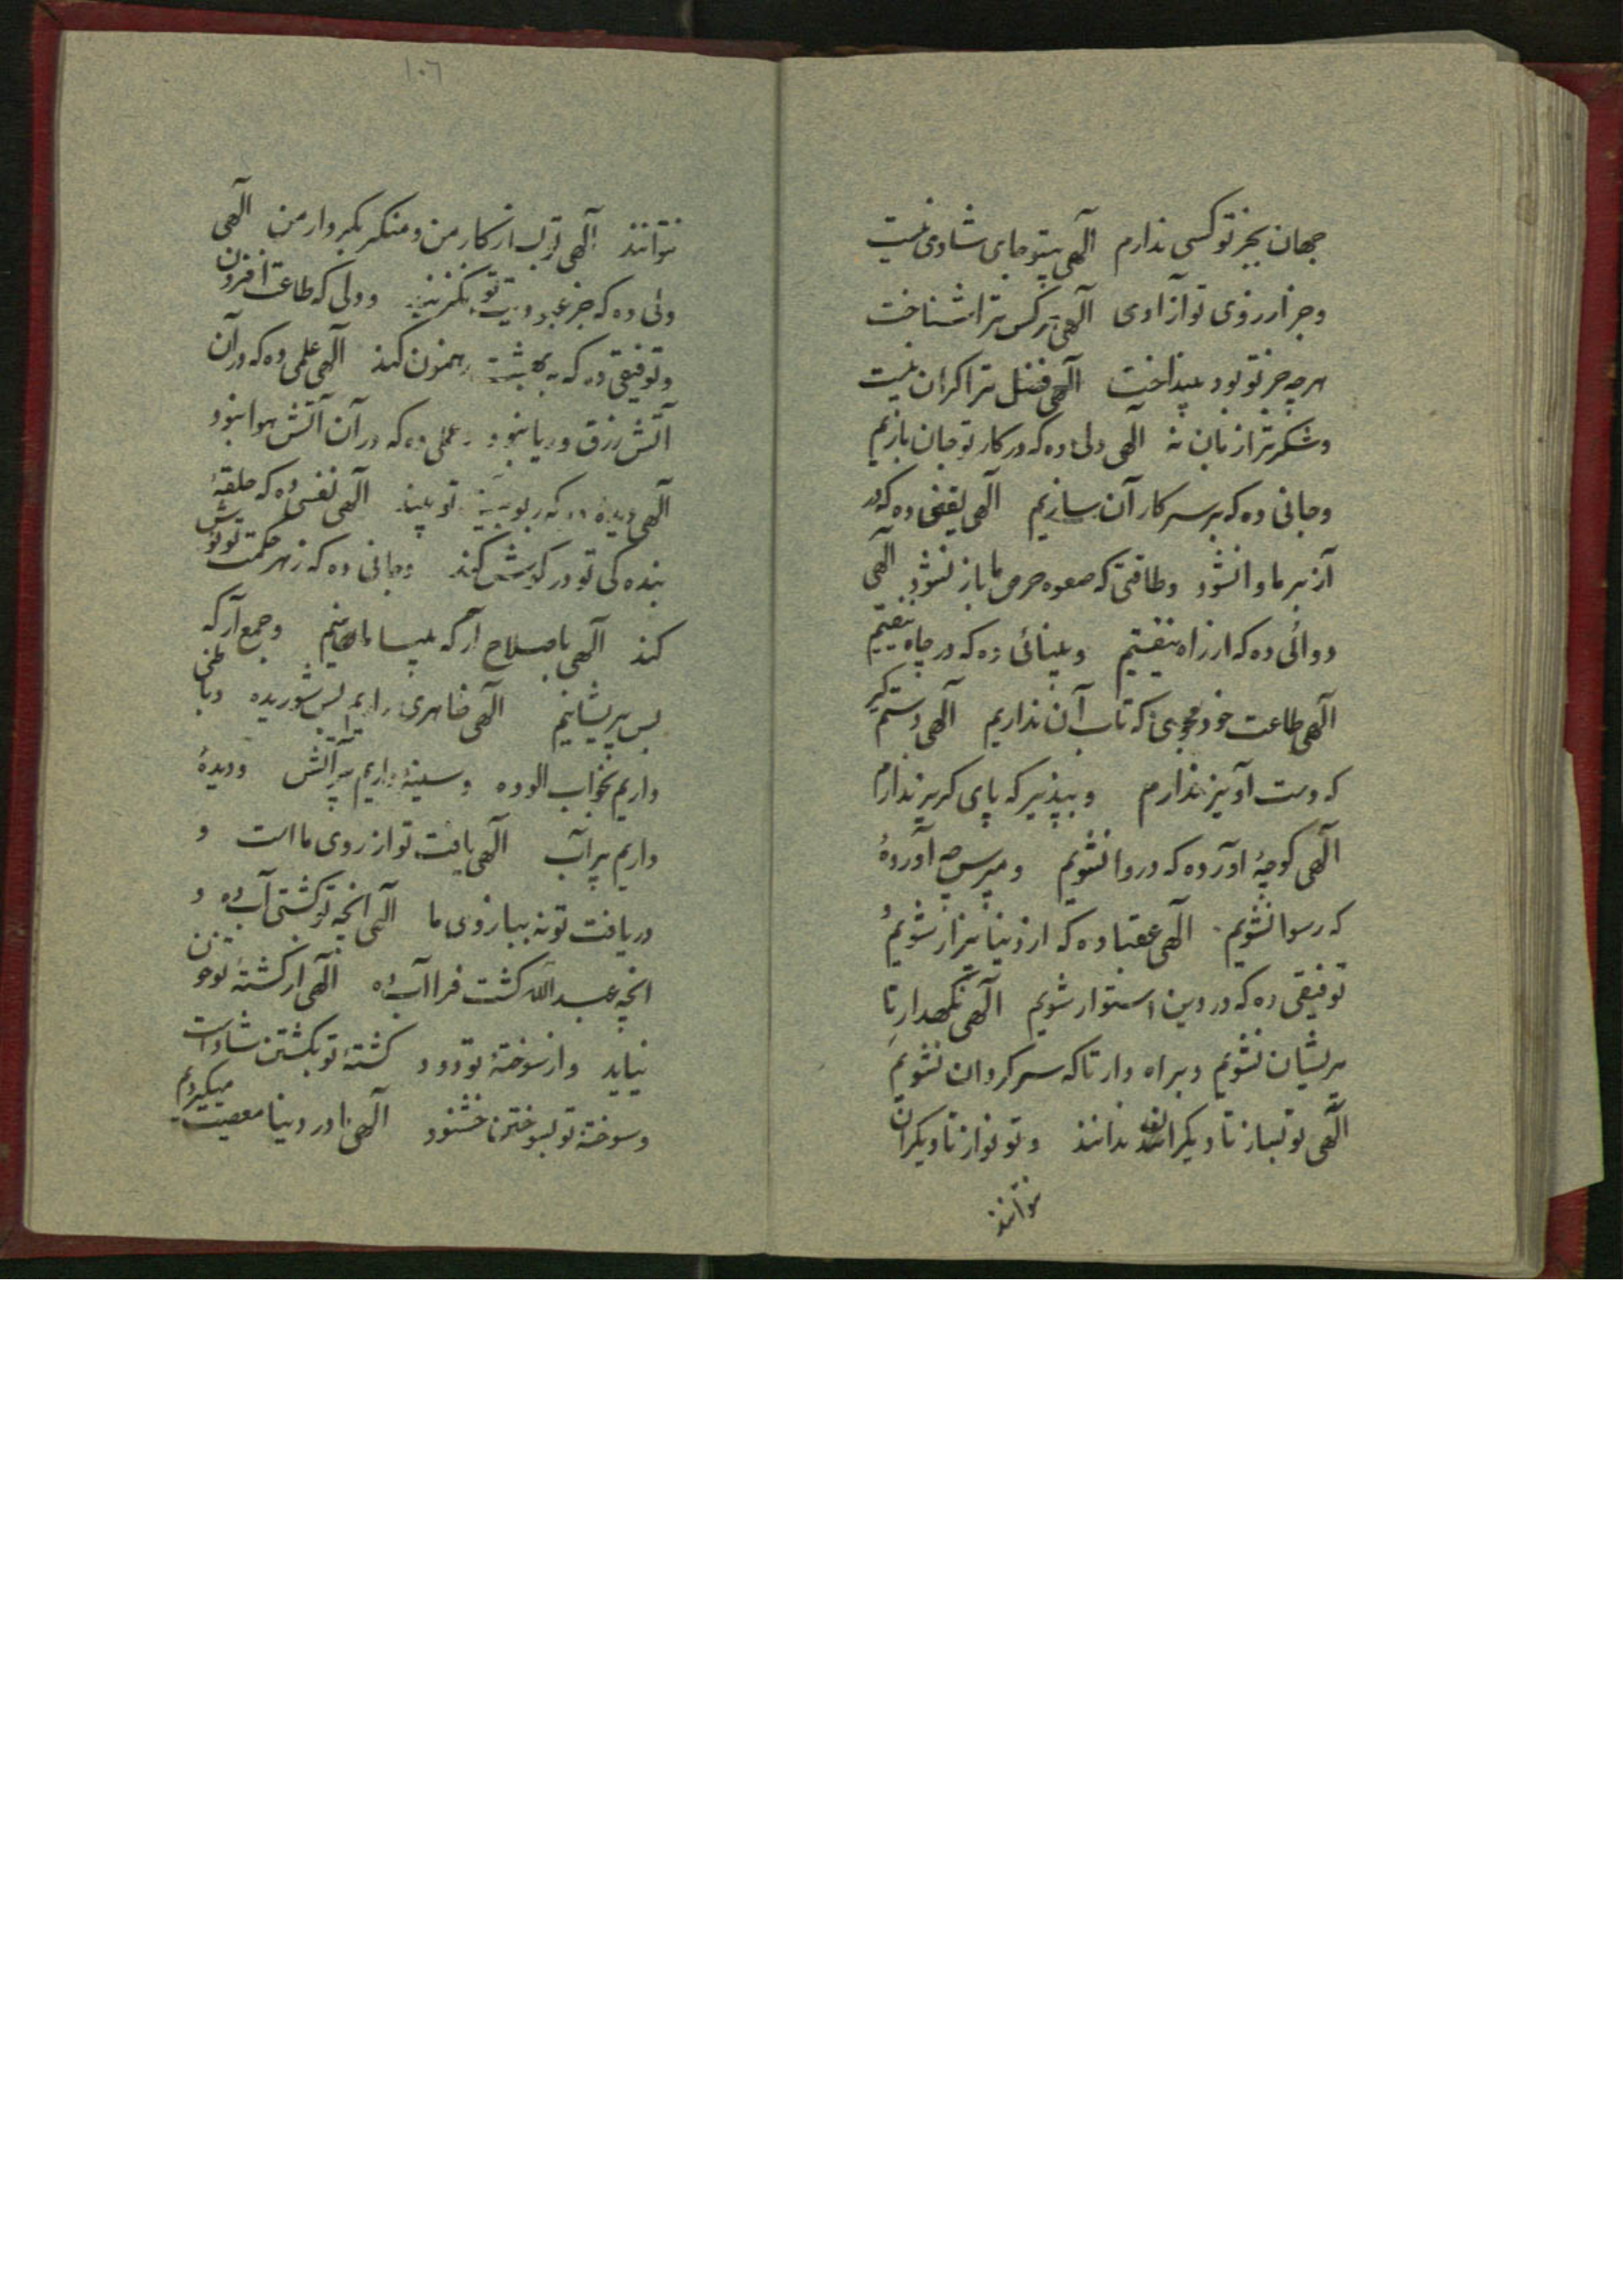 جهان بجز تو کسی ندارم الهی بیتو جای شادی نیست
و جز از روی تو آزادی الهی هر کس ترا شناخت
هر چه جز تو بود بینداخت الهی فضل ترا کران نیست
و شکر ترا زبان نه الهی دلی ده که در کار تو جان بازیم
و جانی ده که بر سر کار آن سازیم الهی یقینی ده که در
آز بر ما وا نشود و طاقتی که صعوه حرص ما باز نشود الهی
دوائی ده که از راه نیفتیم و بینائی ده که در چاه نیفتیم
الهی طاعت خود مجوی که تاب آن نداریم الهی دستم گیر
که دست آویز ندارم و بپذیر که پای گریز ندارم
الهی گو چه آورده که دروا نشویم و مپرس چه آورده
که رسوا نشویم الهی عقبا ده که از دنیا بیزار شویم و
توفیقی ده که در دین استوار شویم الهی نگهدار تا
پریشان نشویم و براه دار تا که سرگردان نشویم
الهی تو بساز تا دیگران ندانند و تو نواز تا دیگران
نتوانند
۱۰۶
نتوانند الهی از کار من و منگر بکردار من الهی
دلی ده که جز عبودیت تو نگزیند و دلی که طاعت افزون
و توفیقی ده که به بهشت رهنمون کند الهی علمی ده که در آن
آتش زرق و ریا نبود و عملی ده که در آن آتش هوا نبود
الهی دیده ده که ربوبیت تو بیند الهی نفسی ده که حلقهٔ
بنده کی تو در گوش کند و جانی ده که زهر حکمت تو نوش
کند الهی باصلاح آر که بی سامانیم و جمع آر که
بس پریشانیم الهی ظاهری داریم بس شوریده و باطنی
داریم بخواب الوده و سینهٔ داریم پر آتش و دیدهٔ
داریم پر آب الهی یافت تو از روی ما است و
دریافت تو نه ببازوی ما الهی انچه تو کشتی آب ده و
انچه عبدالله کشت فرا آب ده الهی از کشتهٔ تو خون
نیاید و از سوختهٔ تو دود کشتهٔ تو بکشتن شاد است
و سوختهٔ تو بسوختن خشنود الهی در دنیا معصیت میکردیم